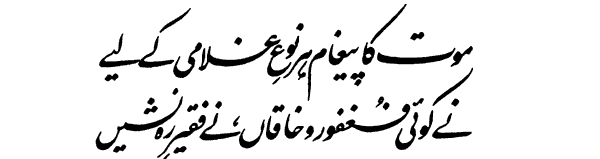 موت کا پیغام ہر نوعِ غلامی کے لیے
نے کوئی فُغفور و خاقاں، نے فقیرِ رہ نشیں